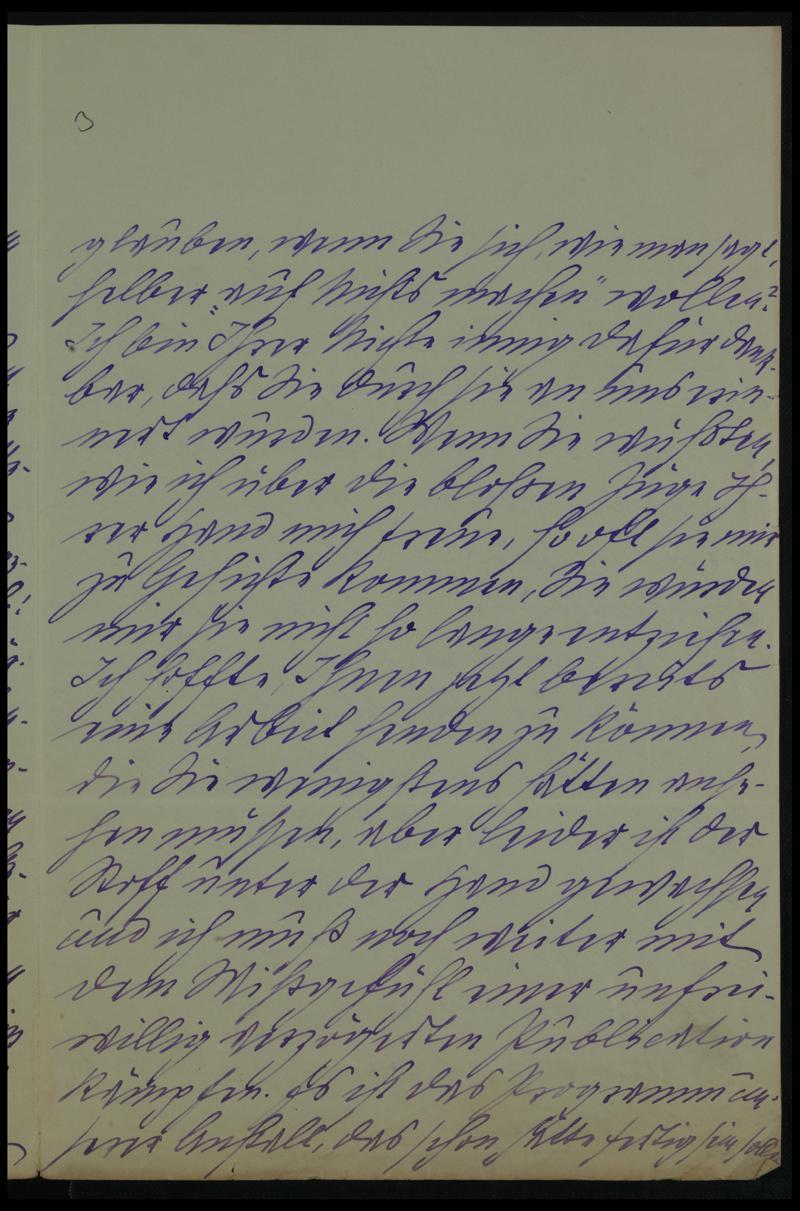 3
glauben, wenn Sie sich, wie man sagt,
selber „auf Nichts machen“ wollen?
Ich bin Ihrer Nichte innig dafür dank-
bar, daß Sie durch sie an uns erin-
nert wurden. Wenn Sie wüßten,
wie ich über die bloßen Züge Ih-
rer Hand mich freue, so oft sie mir
zu Gesichte kommen, Sie würden
mir sie nicht so lange entziehen.
Ich hoffte, Ihnen jetzt bereits
eine Arbeit senden zu können,
die Sie wenigstens hätten anse-
hen müssen, aber leider ist der
Stoff unter der Hand gewachsen
und ich muß noch weiter mit
dem Mißgefühl einer unfrei-
willig verzögerten Publication
kämpfen. Es ist das Programm un-
serer Anstalt, das schon hätte fertig sein sollen